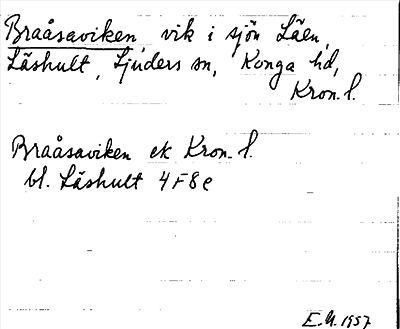 Braåsaviken vik i sjön Läen,
Läshult, Ljuders sn, Konga hd,
Kron. l.
Braåsaviken ek Kron. l.
bl. Läshult 4F8e
E.M. 1957